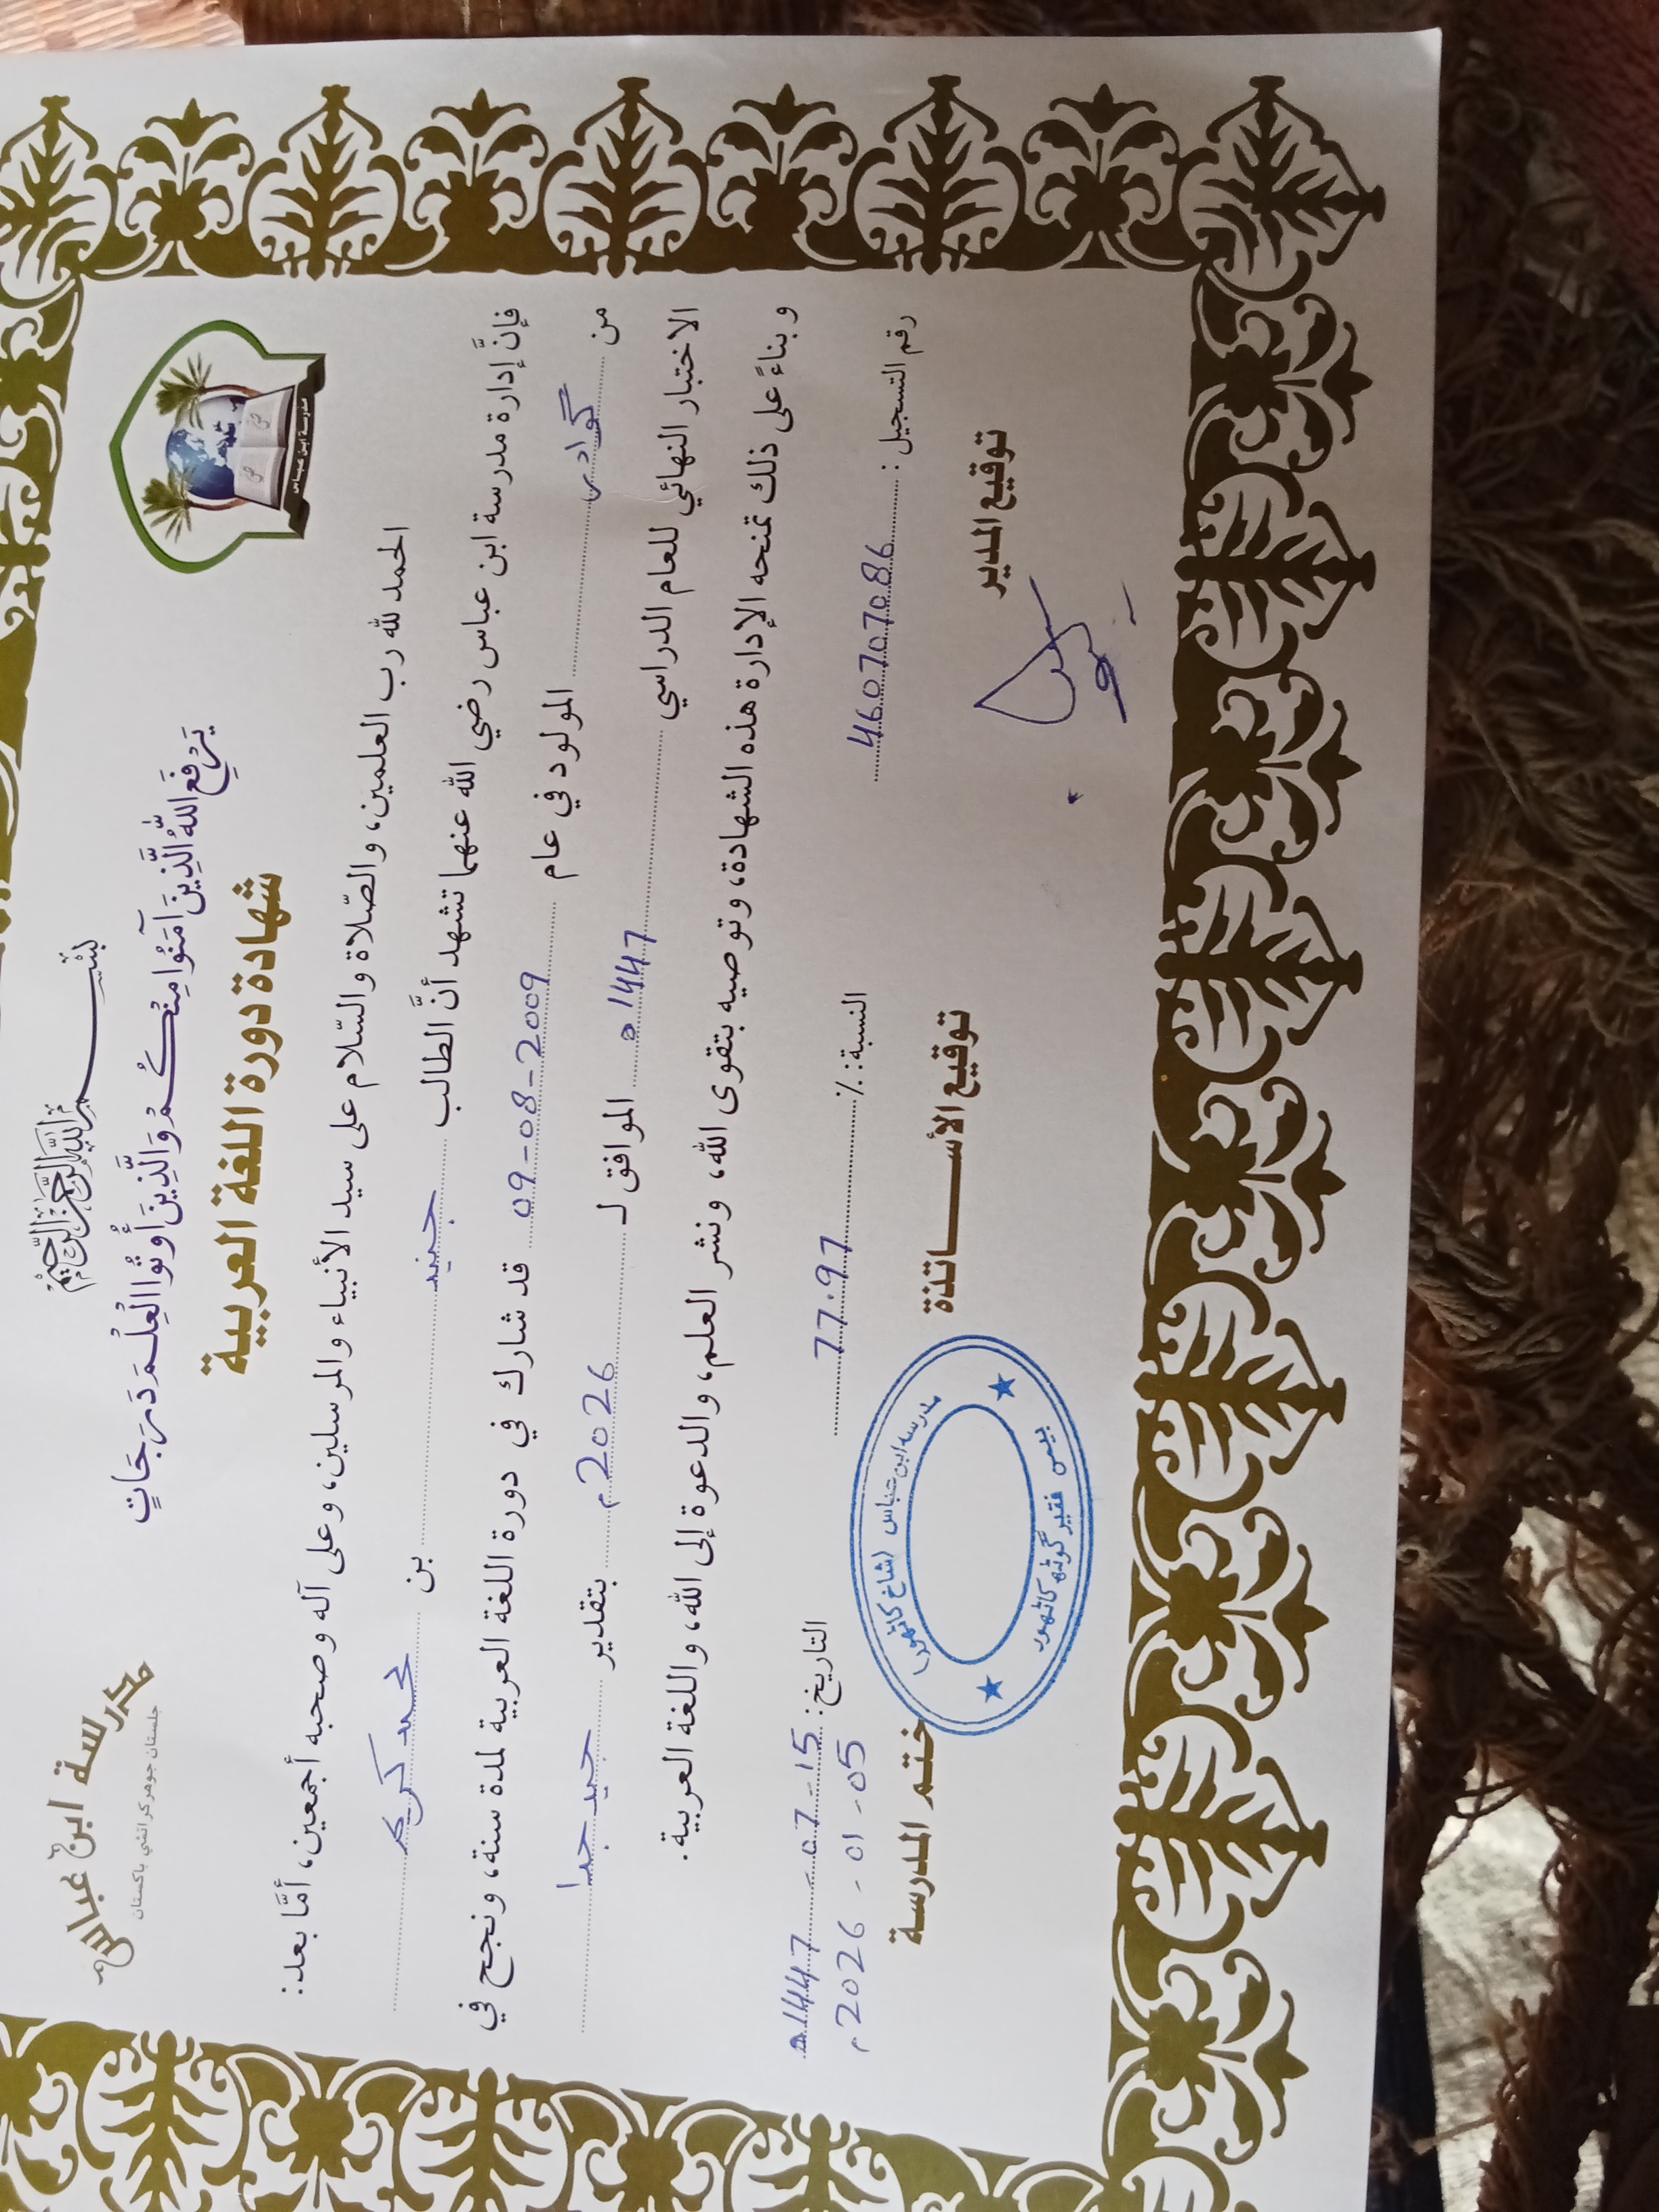 بِسْمِ اللَّهِ الرَّحْمَنِ الرَّحِيمِ
يَرْفَعِ اللَّهُ الَّذِينَ آمَنُوا مِنْكُمْ وَالَّذِينَ أُوتُوا الْعِلْمَ دَرَجَاتٍ
مدرسة ابن عباس
جلستان جوهر كراتشي باكستان
مدرسة ابن عباس
شهادة دورة اللغة العربية
الحمد لله رب العلمين، والصّلاة والسّلام على سيد الأنبياء والمرسلين، وعلى آله وصحبه أجمعين، أمَّا بعد:
فإنَّ إدارة مدرسة ابن عباس رضي الله عنهما تشهد أنَّ الطالب جنيد بن محمد كريم
من گوادر المولود في عام 09-08-2009 قد شارك في دورة اللغة العربية لمدة سنة، ونجح في
الاختبار النهائي للعام الدراسي 1447ه الموافق لـ 2026م بتقدير جيد جدا
وبناءً على ذلك تمنحه الإدارة هذه الشهادة، وتوصيه بتقوى الله، ونشر العلم، والدعوة إلى الله، واللغة العربية.
رقم التسجيل: 460707086 النسبة: ٪ 77.97 التاريخ: 15-07-1447ه
05-01-2026م
توقيع المدير توقيع الأســـاتذة ختم المدرسة
مدرسہ ابن عباس (شاخ کاٹھور)
فقیر گوٹھ کاٹھور